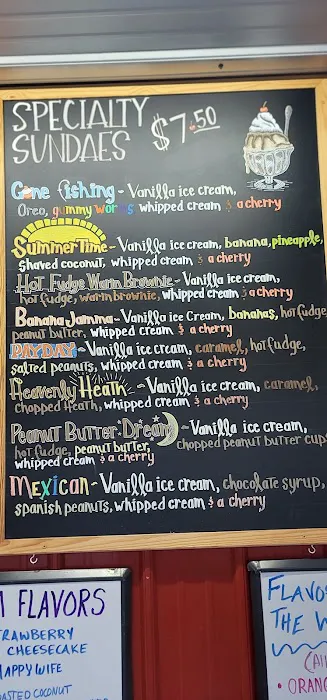 SPECIALTY
SUNDAES $7.50
Gone fishing - Vanilla ice cream,
Oreo, gummy worms, whipped cream & a cherry
SummerTime - Vanilla ice cream, banana, pineapple,
shaved coconut, whipped cream & a cherry
Hot Fudge Warm Brownie - Vanilla ice cream,
hot fudge, warm brownie, whipped cream & a cherry
Banana Jamma - Vanilla ice Cream, bananas, hot fudge,
peanut butter, whipped cream & a cherry
PAYDAY - Vanilla ice cream, caramel, hot fudge,
salted peanuts, whipped cream & a cherry
Heavenly Heath - Vanilla ice cream, caramel,
chopped Heath, whipped cream & a cherry
Peanut Butter Dream - Vanilla ice cream,
hot fudge, peanut butter, chopped peanut butter cups
whipped cream & a cherry
Mexican - Vanilla ice cream, chocolate syrup,
spanish peanuts, whipped cream & a cherry
FLAVORS
STRAWBERRY
CHEESECAKE
HAPPY WIFE
TOASTED COCONUT
FLAVO
THE W
ORANG